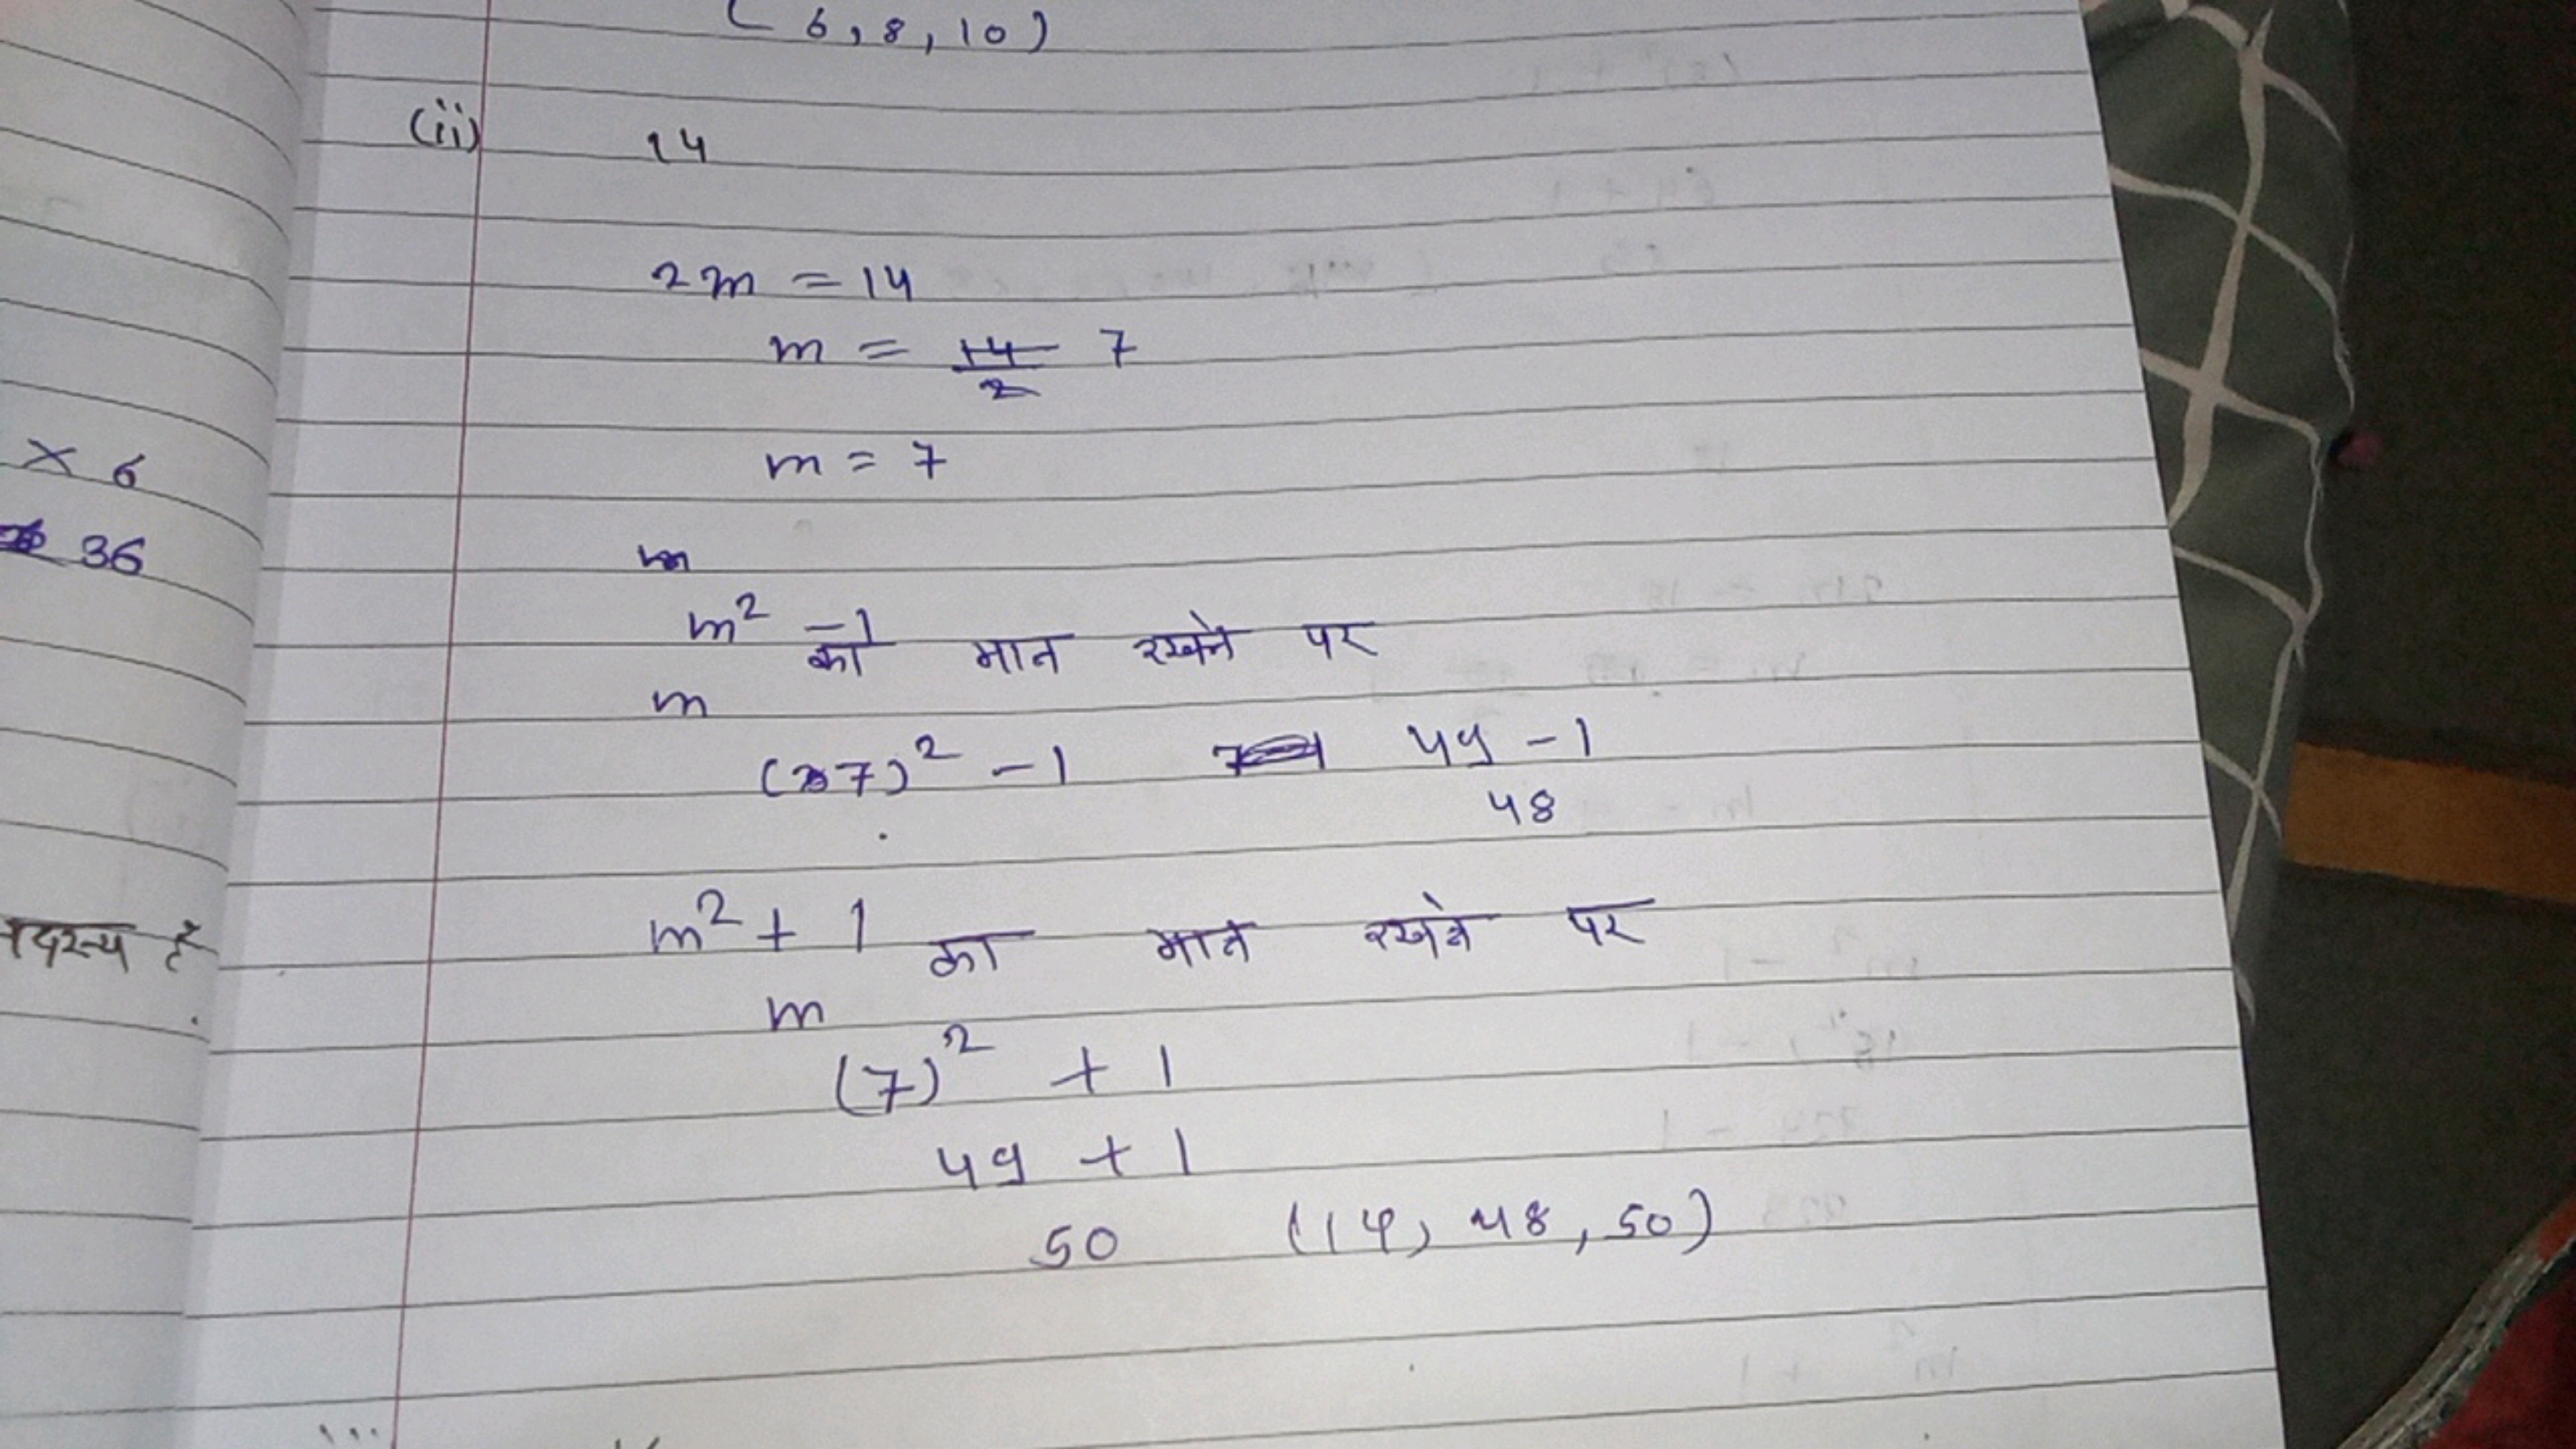 (6, 8, 10)
(ii) 14
2m = 14
m = 14/2 7
m = 7
m
m² - 1 का मान रखने पर
m
(7)² - 1 49 - 1
48
m² + 1 का मान रखने पर
m
(7)² + 1
49 + 1
50 (14, 48, 50)
× 6
36